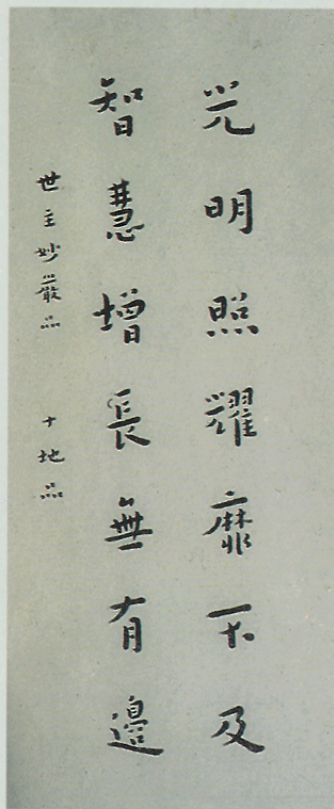 光明照耀靡不及
智慧增長無有邊
世主妙嚴品　十地品